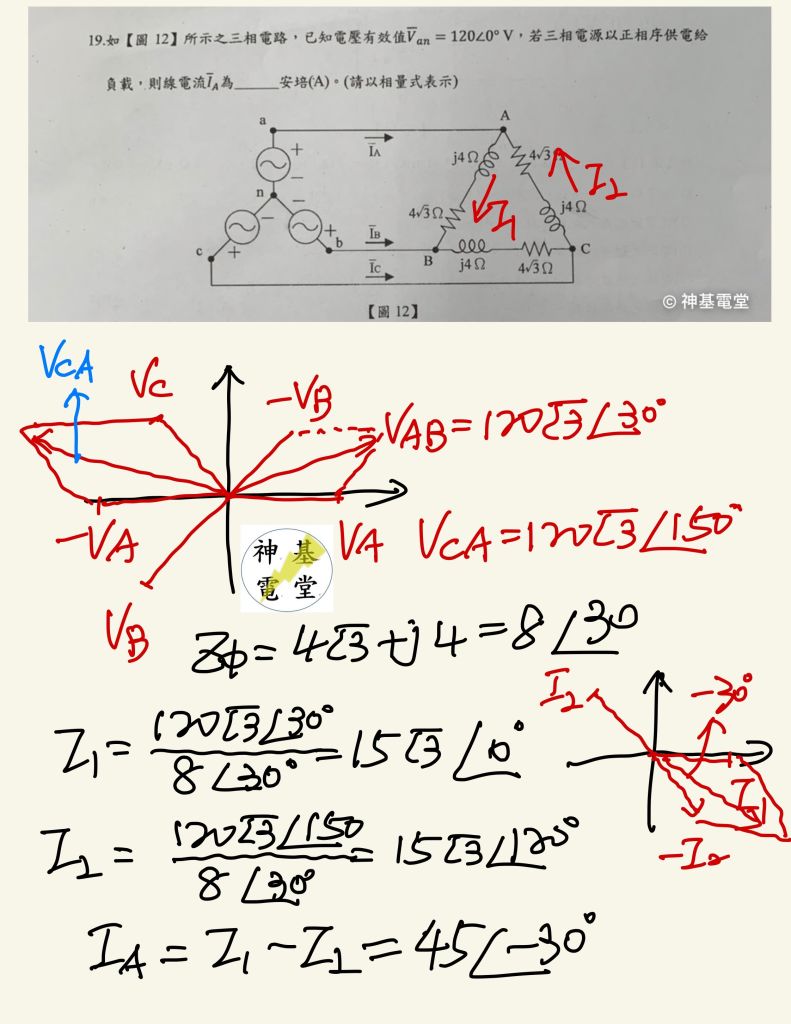 19.如【圖 12】所示之三相電路，已知電壓有效值V̅an = 120∠0° V，若三相電源以正相序供電給
負載，則線電流I̅A為______安培(A)。(請以相量式表示)
a
A
I̅A
j4 Ω
4√3
I2
+
−
n
−
−
j4 Ω
4√3 Ω
I1
+
I̅B
b
c
+
B
C
I̅C
j4 Ω
4√3 Ω
【圖 12】
© 神基電堂
VCA
VC
-VB
VAB = 120√3∠30°
-VA
神基
電堂
VA
VCA = 120√3∠150°
VB
Zφ = 4√3 + j4 = 8∠30
I1 = 120√3∠30° / 8∠30° = 15√3∠0°
I2
-30°
I
-I2
I2 = 120√3∠150 / 8∠30° = 15√3∠120°
IA = I1 - I2 = 45∠-30°